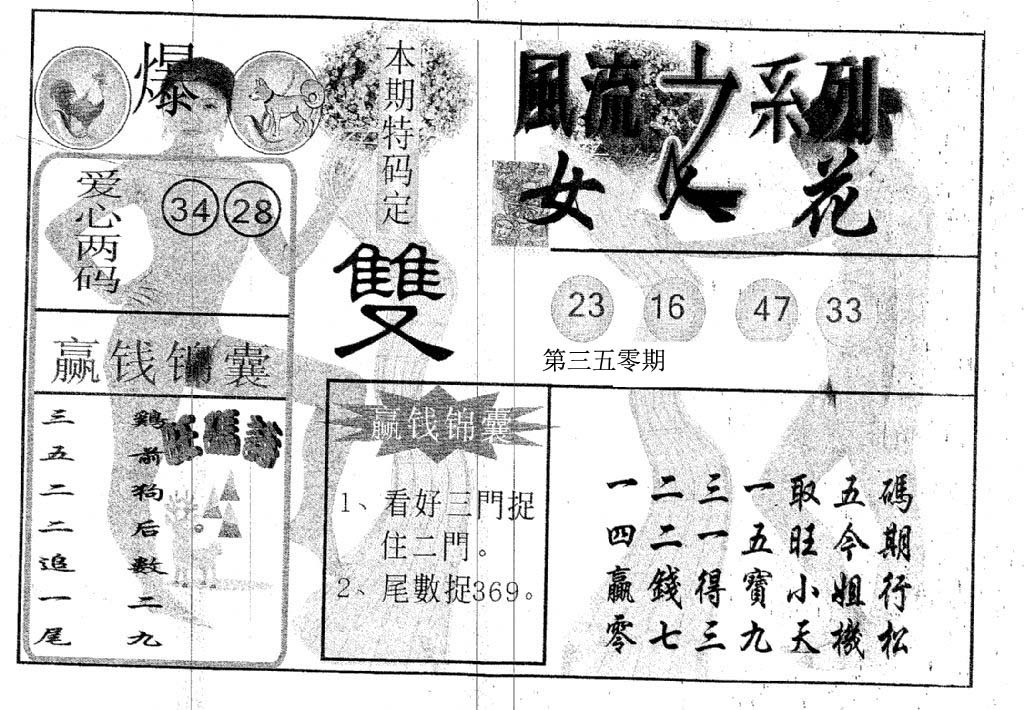 爆
爱心两码
34 28
赢钱锦囊
三五二二追一尾
鷄前狗后數二九
旺碼詩
本期特码定
雙
赢钱锦囊
1、看好三門捉
住二門。
2、尾數捉369。
風流之系列
女人花
23 16 47 33
第三五零期
一二三一取五碼
四二一五旺今期
贏錢得寶小姐行
零七三九天機松